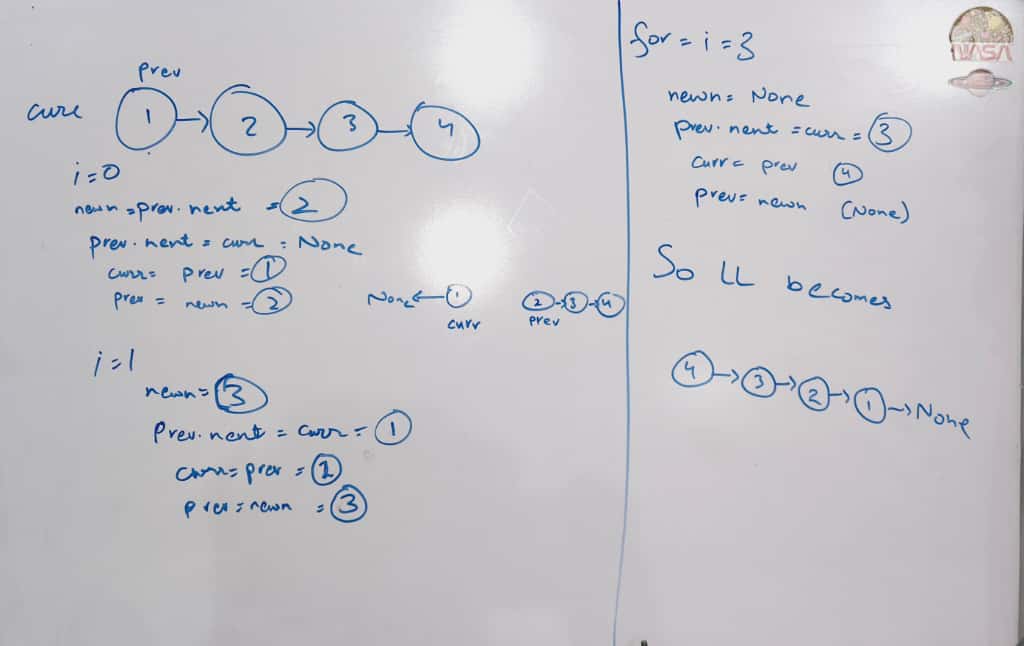 prev
curr 1 → 2 → 3 → 4
i=0
newn = prev.nent = 2
prev.nent = curr = None
curr= prev = 1
prev = newn = 2
None ← 1 2 → 3 → 4
curr prev
i=1
newn= 3
Prev.nent = curr = 1
curr= prev = 2
prev = newn = 3
for = i = 3
newn= None
prev.nent = curr = 3
curr= prev 4
prev= newn (None)
So LL becomes
4 → 3 → 2 → 1 → None
NASA